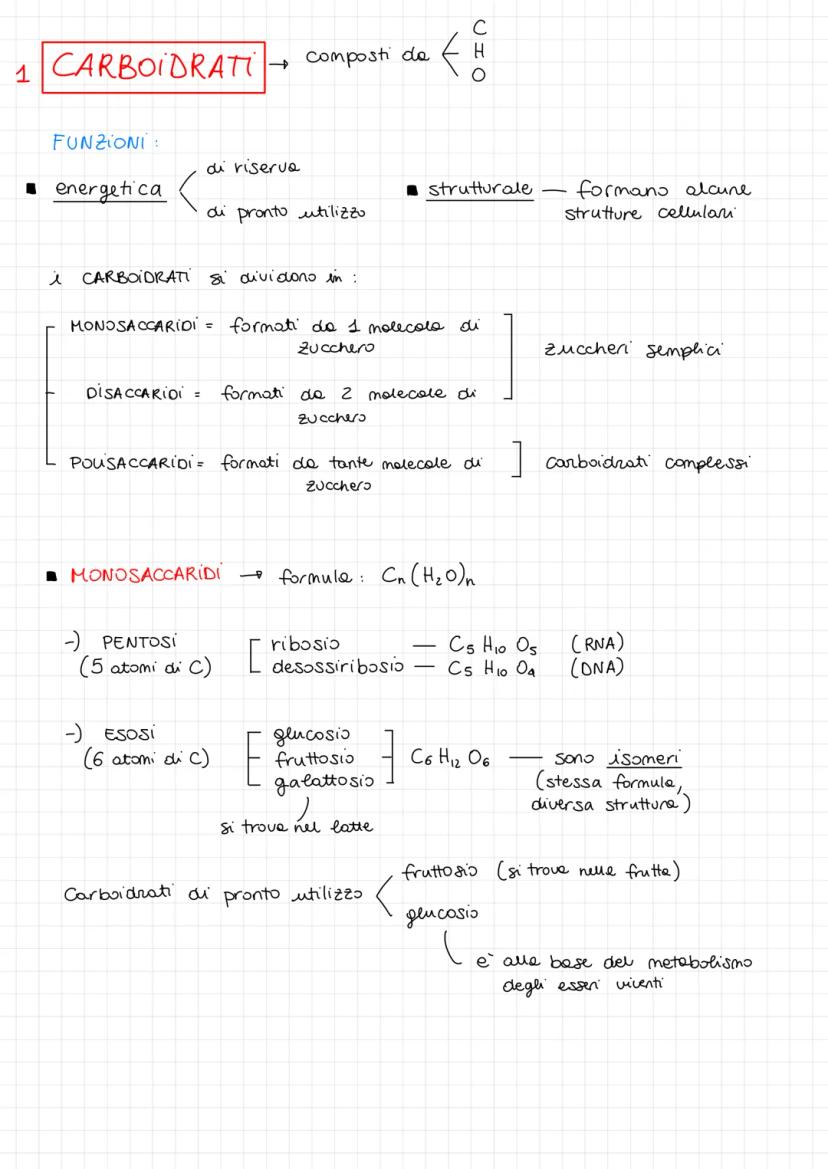 1 CARBOIDRATI → composti da C
H
O
FUNZIONI:
■ energetica di riserva
di pronto utilizzo
■ strutturale — formano alcune
strutture cellulari
i CARBOIDRATI si dividono in:
MONOSACCARIDI = formati da 1 molecola di
zucchero
DISACCARIDI = formati da 2 molecole di
zucchero
zuccheri semplici
POLISACCARIDI = formati da tante molecole di
zucchero
carboidrati complessi
■ MONOSACCARIDI → formula: Cn(H₂O)n
-) PENTOSI
(5 atomi di C)
ribosio — C5 H10 O5 (RNA)
desossiribosio — C5 H10 O4 (DNA)
-) ESOSI
(6 atomi di C)
glucosio
fruttosio
galattosio
C6 H12 O6 — sono isomeri
(stessa formula,
diversa struttura)
si trova nel latte
Carboidrati di pronto utilizzo
fruttosio (si trova nella frutta)
glucosio
è alla base del metabolismo
degli esseri viventi